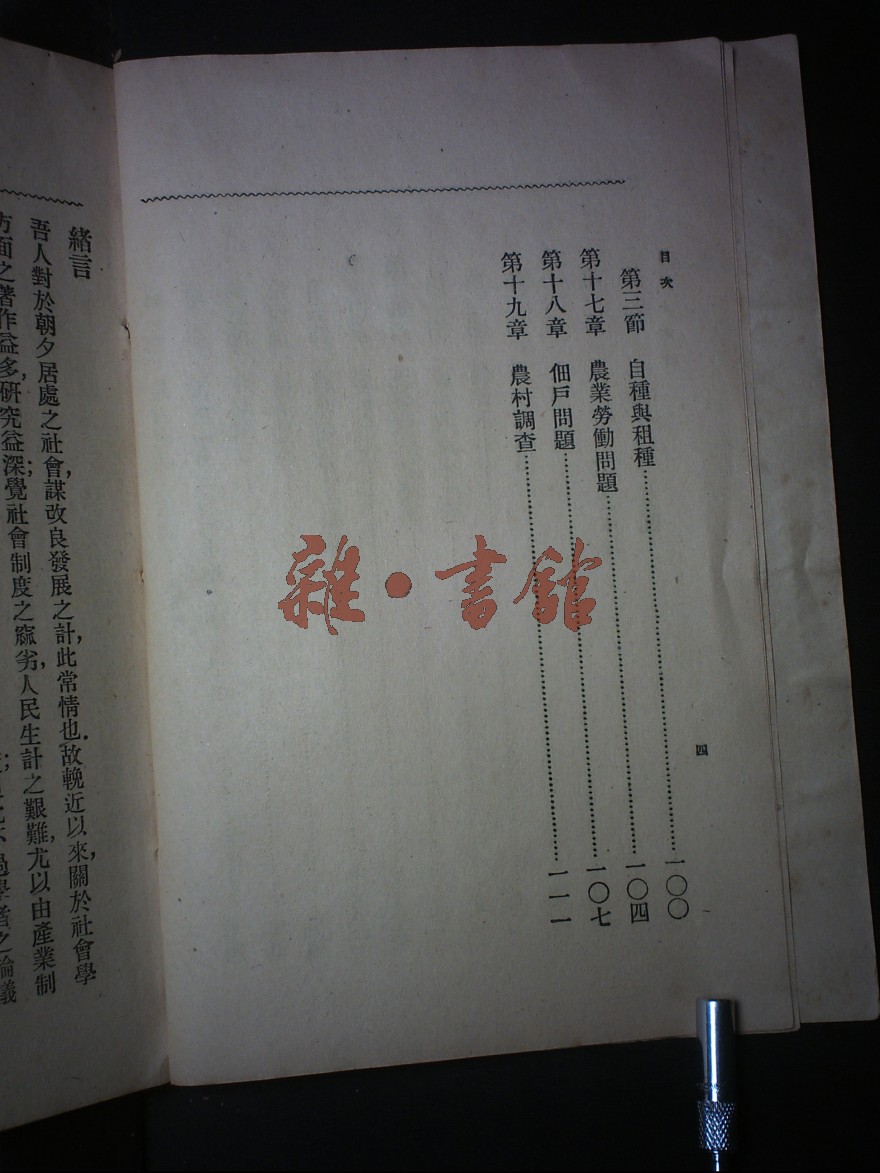 目次
第三節　自種與租種……一〇〇
第十七章　農業勞働問題……一〇四
第十八章　佃戶問題……一〇七
第十九章　農村調查……一一一
四
雜・書館
緒言
吾人對於朝夕居處之社會，謀改良發展之計，此常情也．故輓近以來，關於社會學
方面之著作益多，研究益深；覺社會制度之窳劣，人民生計之艱難，尤以由產業制
學者之論議